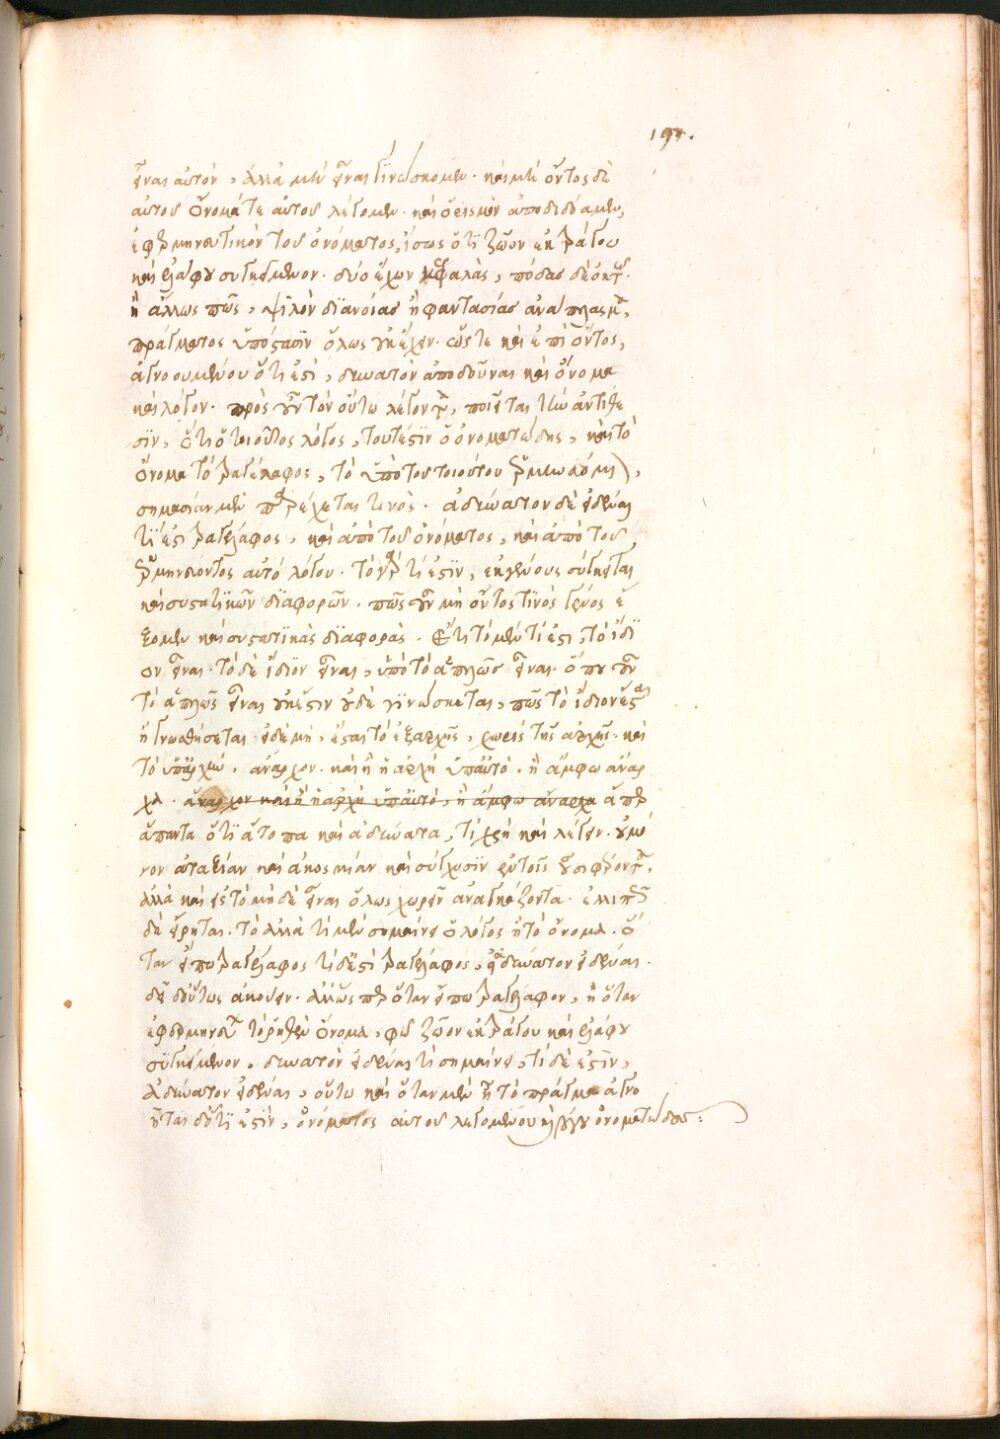 197.
εἶναι αὐτὸν, ἀλλὰ μὴν εἶναι γινώσκομεν. καὶ μὴ ὄντος δὲ
αὐτοῦ ὄνομά τε αὐτοῦ λέγομεν. καὶ ὁρισμὸν ἀποδιδόαμεν,
ἑρμηνευτικὸν τοῦ ὀνόματος, ἴσως ὅτι ζῶον ἐκ τράγου
καὶ ἐλάφου συγκείμενον. δύο ἔχων κεφαλὰς, πόδας δὲ ὀκτώ.
ἢ ἄλλως πῶς, ψιλὸν διανοίας ἢ φαντασίας ἀνάπλασμα,
πράγματος ὑπόστασιν ὅλως οὐκ ἔχον. ὥστε καὶ ἐπὶ ὄντος,
ἀγνοουμένου ὅτι ἐστὶ, δυνατὸν ἀποδοῦναι καὶ ὄνομα
καὶ λόγον. πρὸς οὖν τὸν οὕτω λέγοντα, ποιεῖται τὴν ἀντίθε
σιν, ὅτι ὁ τοιοῦτος λόγος, τουτέστιν ὁ ὀνοματώδης, καὶ τὸ
ὄνομα τὸ τραγέλαφος, τὸ ὑπὸ τοῦ τοιούτου ἑρμηνευόμενον,
σημασίαν μὲν παρέχεται τινός. ἀδύνατον δὲ εἰδέναι
τί ἐστι τραγέλαφος, καὶ ἀπὸ τοῦ ὀνόματος, καὶ ἀπὸ τοῦ
ἑρμηνεύοντος αὐτὸ λόγου. τὸ γὰρ τί ἐστιν, ἐκ γένους σύγκειται
καὶ συστατικῶν διαφορῶν. πῶς οὖν μὴ ὄντος τινὸς γένος ἕ
ξομεν καὶ συστατικὰς διαφοράς. ἔτι τὸ μὲν τί ἐστι, τὸ ἴδι
ον εἶναι. τὸ δὲ ἴδιον εἶναι, ὑπὸ τὸ ἁπλῶς εἶναι. ὅπου οὖν
τὸ ἁπλῶς εἶναι οὐκ ἔστιν οὐδὲ γινώσκεται, πῶς τὸ ἴδιον ἔσται
ἢ γνωσθήσεται. εἰ δὲ μή, ἔσται τὸ ἐξ ἀρχῆς, χωρὶς τῆς ἀρχῆς. καὶ
τὸ ὑπ' ἀρχὴν, ἄναρχον. καὶ ἢ ἡ ἀρχὴ ὑπ' αὐτό. ἢ ἄμφω ἄναρ
χα. ἄναρχον καὶ ἢ ἡ ἀρχὴ ὑπ' αὐτό, ἢ ἄμφω ἄναρχα ἅπερ
ἅπαντα ὅτι ἄτοπα καὶ ἀδύνατα, τί χρὴ καὶ λέγειν. οὐ μό
νον ἀταξίαν καὶ ἀκοσμίαν καὶ σύγχυσιν ἐν τοῖς οὖσι φέροντα,
ἀλλὰ καὶ εἰς τὸ μηδὲ εἶναι ὅλως χωρεῖν ἀναγκάζοντα. ἐλλιπῶς
δὲ εἴρηται. τὸ ἀλλὰ τί μὲν σημαίνει ὁ λόγος ἢ τὸ ὄνομα. ὅ
ταν εἴπω τραγέλαφος τί δ' ἐστὶ τραγέλαφος, ἀδύνατον εἰδέναι.
δεῖ δ' οὕτως ἀκούειν. ἀλλ' ὥσπερ ὅταν εἴπω τραγέλαφον, ἢ ὅταν
ἐφερμηνεύσω τὸ ῥηθὲν ὄνομα, φῶ ζῶον ἐκ τράγου καὶ ἐλάφου
συγκείμενον, δυνατὸν εἰδέναι τί σημαίνει, τί δὲ ἐστὶν,
ἀδύνατον εἰδέναι, οὕτω καὶ ὅταν μὲν ᾖ τὸ πρᾶγμα ἀγνο
ῆται δ' ὅτι ἐστὶν, ὀνόματος αὐτοῦ λεγομένου ἢ λόγου ὀνοματώδους: